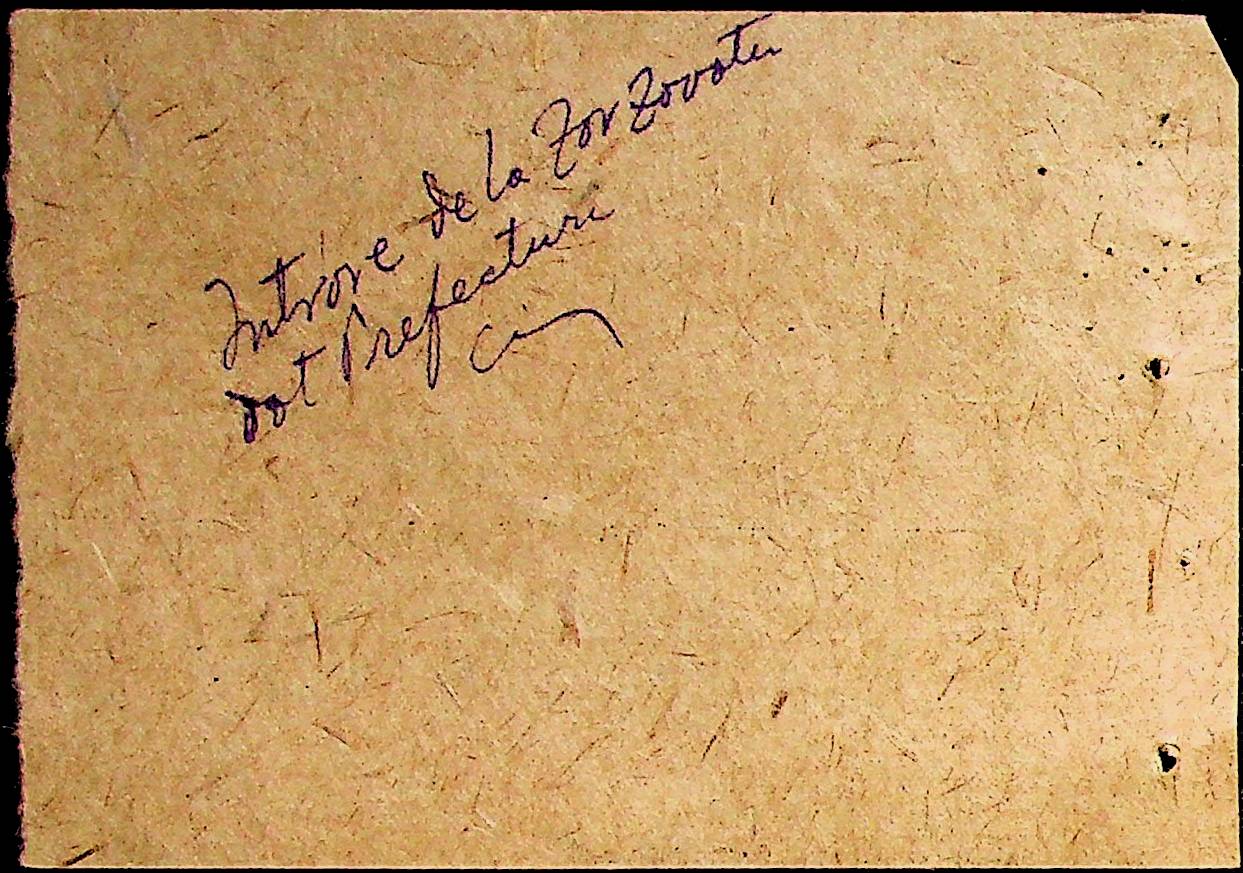 Intrare de la Zarzavater
dat Prefecturi